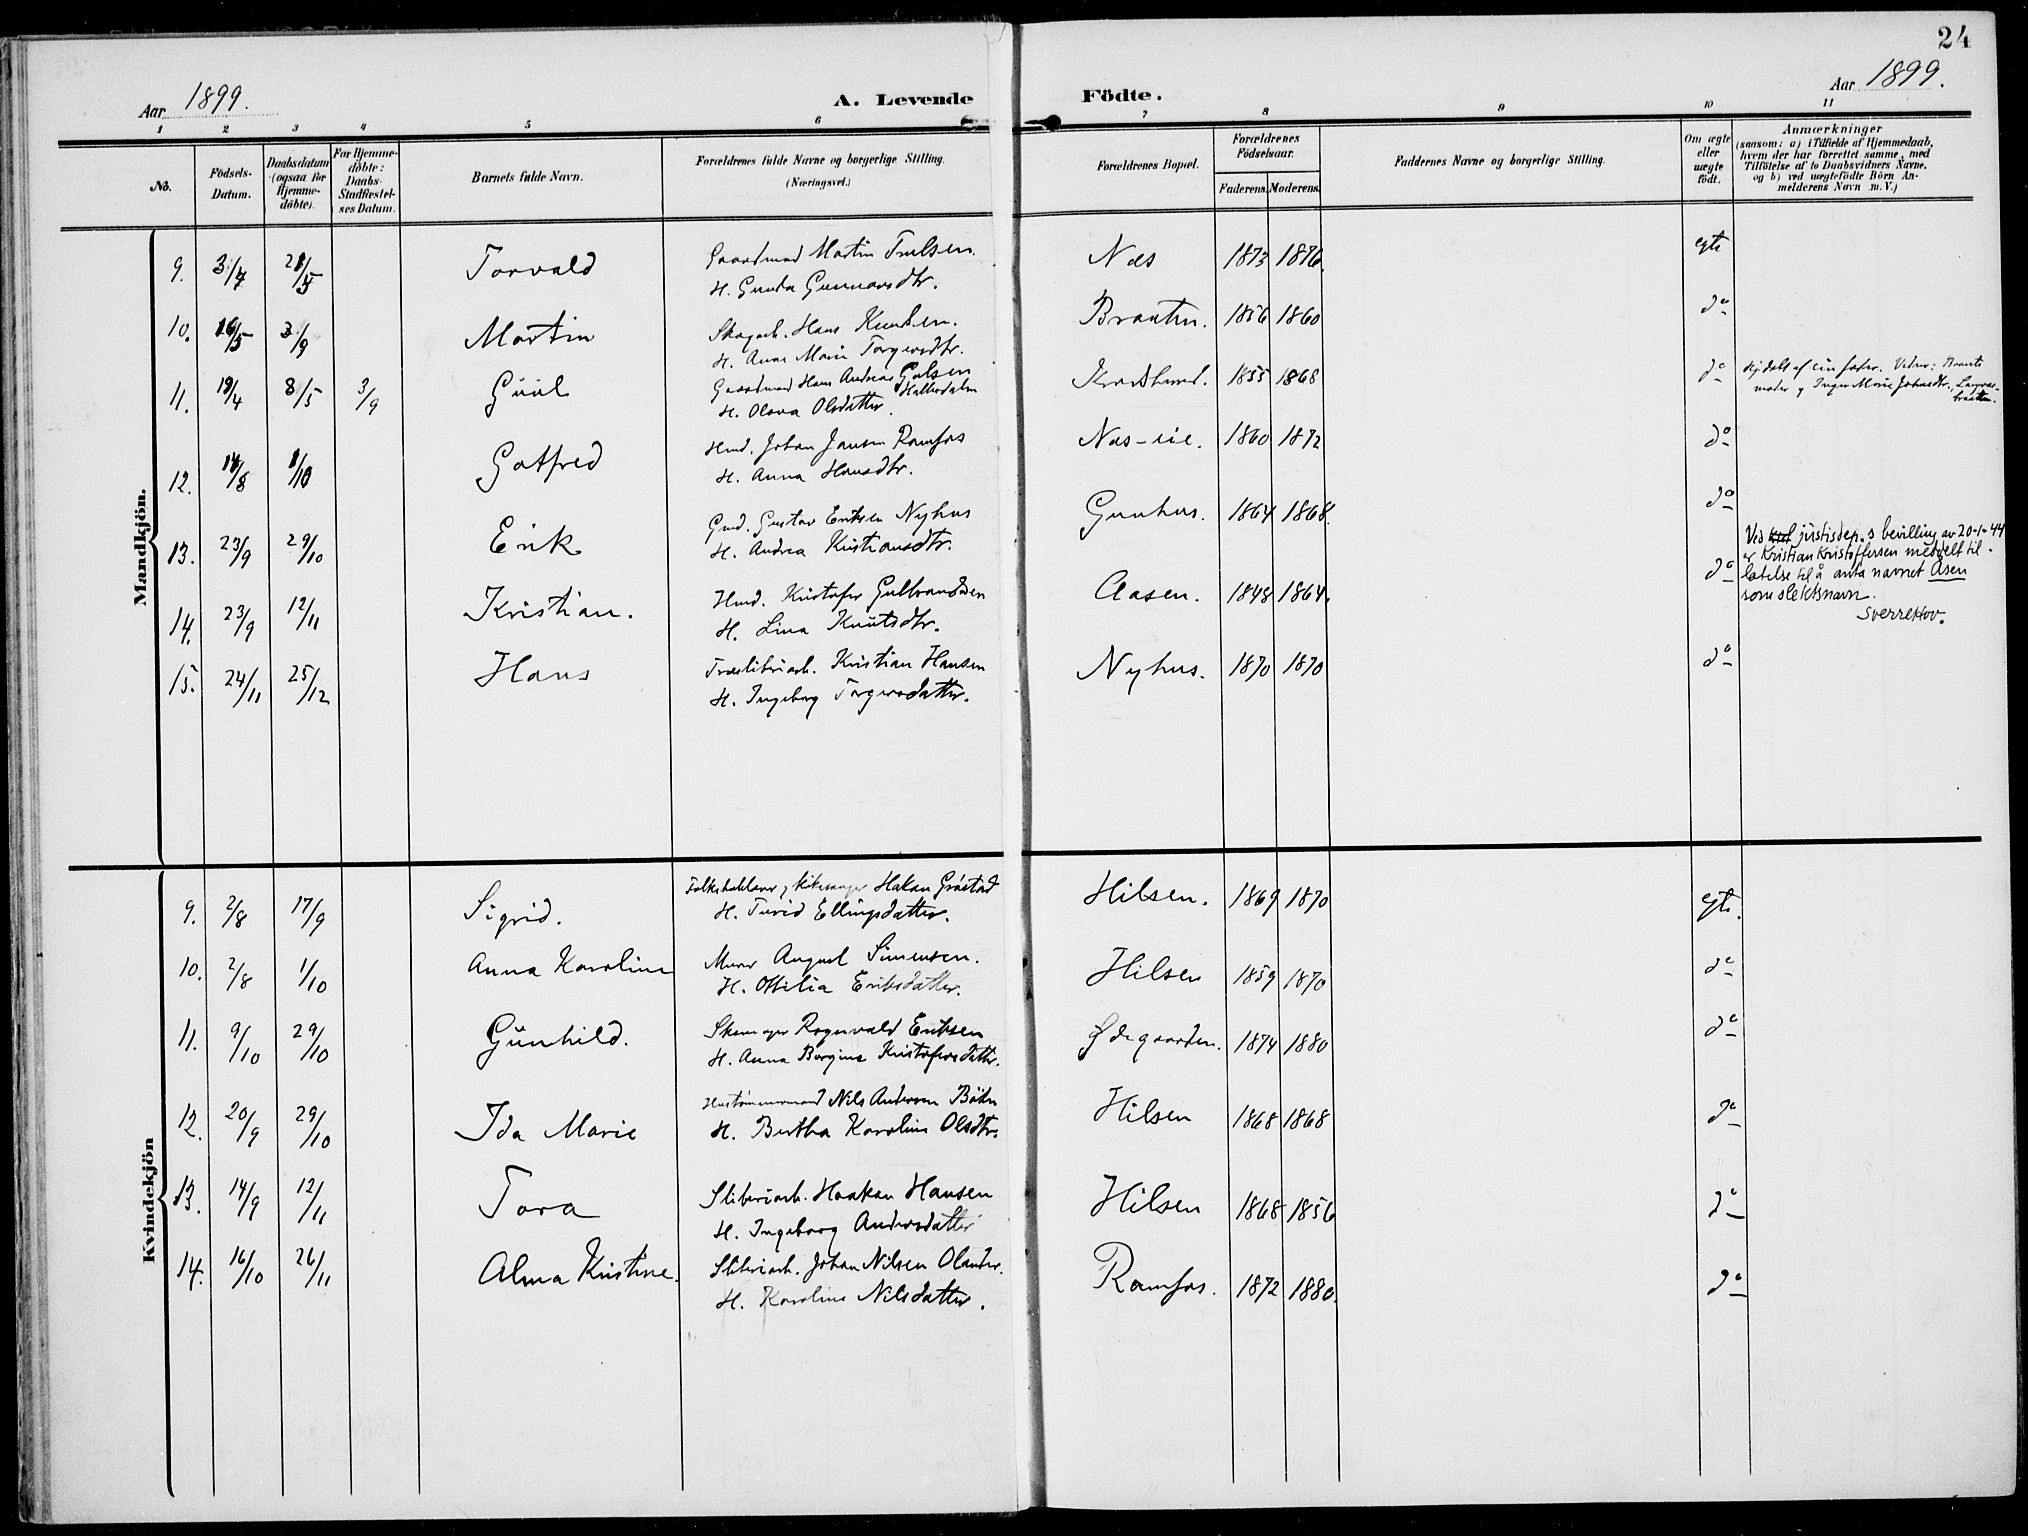 24
Aar 1899.
A. Levende
Födte.
Aar 1899.
1 2 3 4 5 6 7 8 9 10 11
No.
Födsels-
Datum.
Daabsdatum
(ogsaa for
Hjemme-
döbte).
For Hjemme-
döbte:
Daabs-
Stadfæstel-
ses Datum.
Barnets fulde Navn.
Forældrenes fulde Navne og borgerlige Stilling.
(Næringsvei.)
Forældrenes Bopæl.
Forældrenes
Födselsaar.
Faderens. Moderens.
Faddernes Navne og borgerlige Stilling.
Om ægte
eller
uægte
födt.
Anmærkninger
(saasom: a) i Tilfælde af Hjemmedaab,
hvem der har forrettet samme, med
Tilföielse af to Daabsvidners Navne,
og b) ved uægtefödte Börn An-
melderens Navn m. V.)
Mandkjön.
9. 3/7 Torvald Gaardmand Martin Trulsen. Næs 1873 1876. egte
H. Gunda Gunnarsdtr.
10. 16/5 3/9 Martin Skogarb. Hans Knudsen. Braaten. 1856 1860 do
H. Anne Marie Torgersdtr.
11. 19/4 8/5 3/9 Gaardmand Hans Andreas Gulsen 1855 1868 do
Hallerdalen
H. Olava Olsdatter
12. 14/8 1/10 Gotfred Hmd. Johan Jansen Ramfos Næs-eie. 1860 1872 do
H. Anna Hansdtr.
13. 23/9 29/10 Erik Gmd. Gustav Eriksen Nyhus Gunhus. 1864 1868. do
H. Andrea Kristiansdtr.
14. 23/9 12/11 Kristian. Hmd. Kristofer Gulbrandsen Aasen. 1848 1864. do
H. Lina Knutsdtr.
Ved justisdep.s bevilling av 20-1-44
er Kristian Kristoffersen meddelt til-
latelse til å anta navnet Åsen
som slektsnavn.
Sverre Hov.
15. 24/11 25/12 Hans Træsliberiarb. Kristian Hansen Nyhus. 1870 1870 do
H. Ingeborg Torgersdatter.
Kvindekjön
9. 2/8 17/9 Sigrid. Folkeskolelærer og kirkesanger Hakan Gröstad Hilsen. 1869 1870 egte.
H. Turid Ellingsdatter.
10. 2/8 1/10 Anna Karoline Murer August Simensen. Hilsen 1859 1870 do
H. Otilia Eriksdatter.
11. 9/10 29/10 Gunhild. Skomager Rognvald Eriksen Ødegaarden. 1874 1880 do
H. Anna Borgine Kristofersdatter.
12. 20/9 29/10 Ida Marie Hustömmermand Nils Andersen Böhn Hilsen 1868 1868 do
H. Bertha Karoline Olsdtr.
13. 14/9 12/11 Tora Sliberiarb. Haakon Hansen Hilsen 1868 1856 do
H. Ingeborg Andersdatter
14. 16/10 26/11 Alma Kristine. Sliberiarb. Johan Nilsen Olander. Ramfos. 1872 1880. do
H. Karoline Nilsdatter.